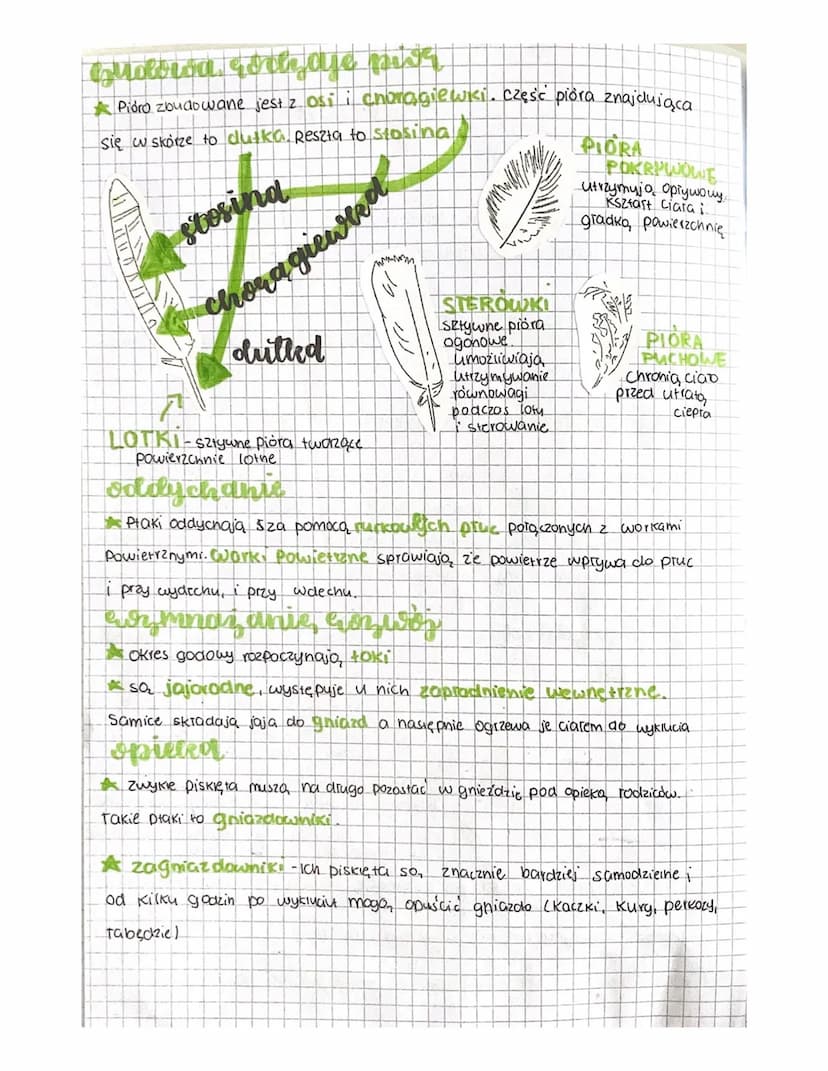 budowa, rodzaje piór
★ Pióro zbudowane jest z osi i chorągiewki. część pióra znajdująca
się w skórze to dutka. Reszta to stosina
stosina
chorągiewka
dutka
PIÓRA
POKRYWOWE
utrzymują opływowy
kształt ciała i
gładką powierzchnię
STERÓWKI
sztywne pióra
ogonowe
umożliwiają
utrzymywanie
równowagi
podczas lotu
i sterowanie
PIÓRA
PUCHOWE
Chronią ciało
przed utratą
ciepła
LOTKI - sztywne pióra tworzące
powierzchnie lotne
oddychanie
★ Ptaki oddychają sza pomocą rurkowatych płuc połączonych z workami
powietrznymi. Worki powietrzne sprawiają, że powietrze wpływa do płuc
i przy wydechu, i przy wdechu.
rozmnażanie, rozwój
★ okres godowy rozpoczynają toki
★ są jajorodne, występuje u nich zapłodnienie wewnętrzne.
Samice składają jaja do gniazd a następnie ogrzewa je ciałem do wyklucia
opieka
★ zwykle pisklęta muszą na długo pozostać w gnieździe pod opieką rodziców.
Takie ptaki to gniazdowniki.
★ zagniazdowniki - ich pisklęta są znacznie bardziej samodzielne i
od kilku godzin po wykluciu mogą opuścić gniazdo (kaczki, kury, perkozy,
łabędzie)